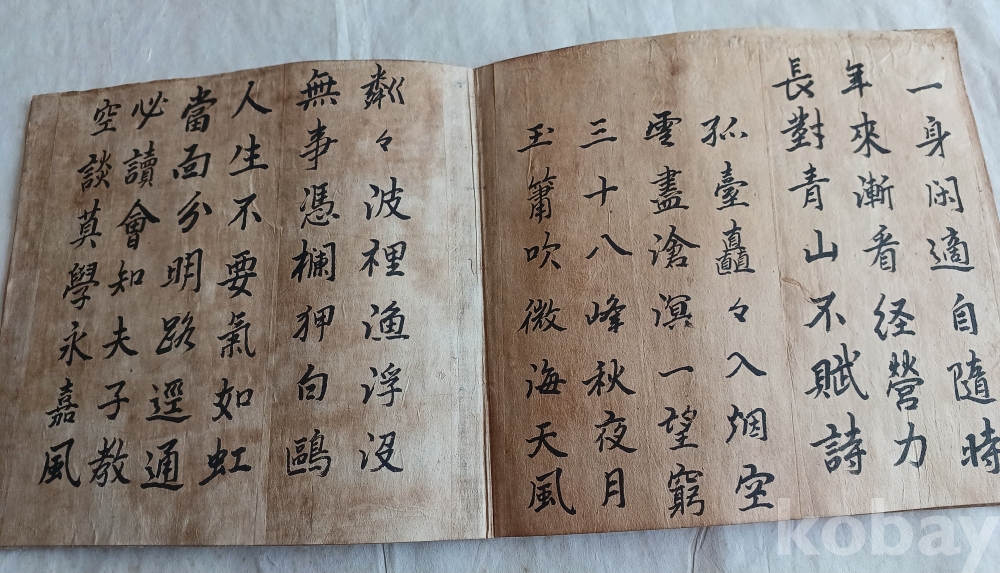 一身闲適自隨時
年來漸看経營力
長對青山不賦詩
孤臺矗々入烟空
雲盡滄溟一望窮
三十八峰秋夜月
玉簫吹微海天風
粼々波裡漁浮没
無事憑欄狎白鷗
人生不要氣如虹
當面分明路逕通
必讀會知夫子教
空談莫學永嘉風
kobay